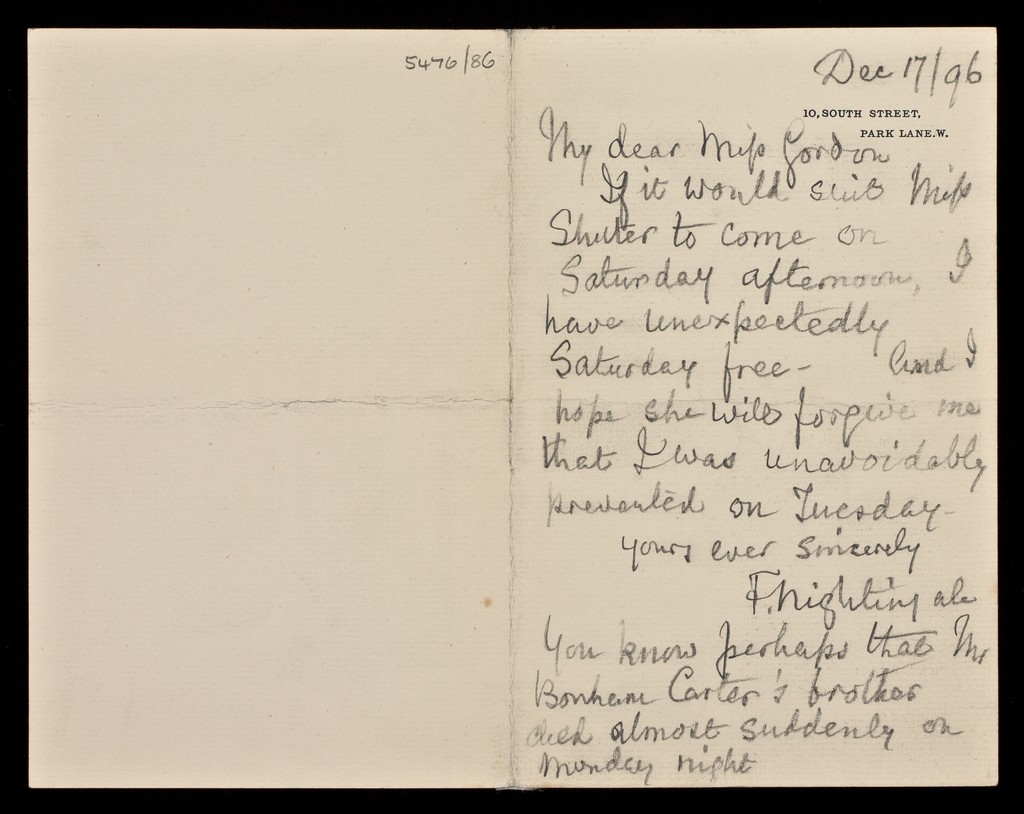 5476/86
Dec 17/96
10, SOUTH STREET,
PARK LANE. W.
My dear Miss Gordon
If it would suit Miss
Shutter to come on
Saturday afternoon, I
have unexpectedly
Saturday free - And I
hope she will forgive me
that I was unavoidably
prevented on Tuesday -
yours ever sincerely
F. Nightingale
You know perhaps that Mr
Bonham Carter's brother
died almost suddenly on
Monday night